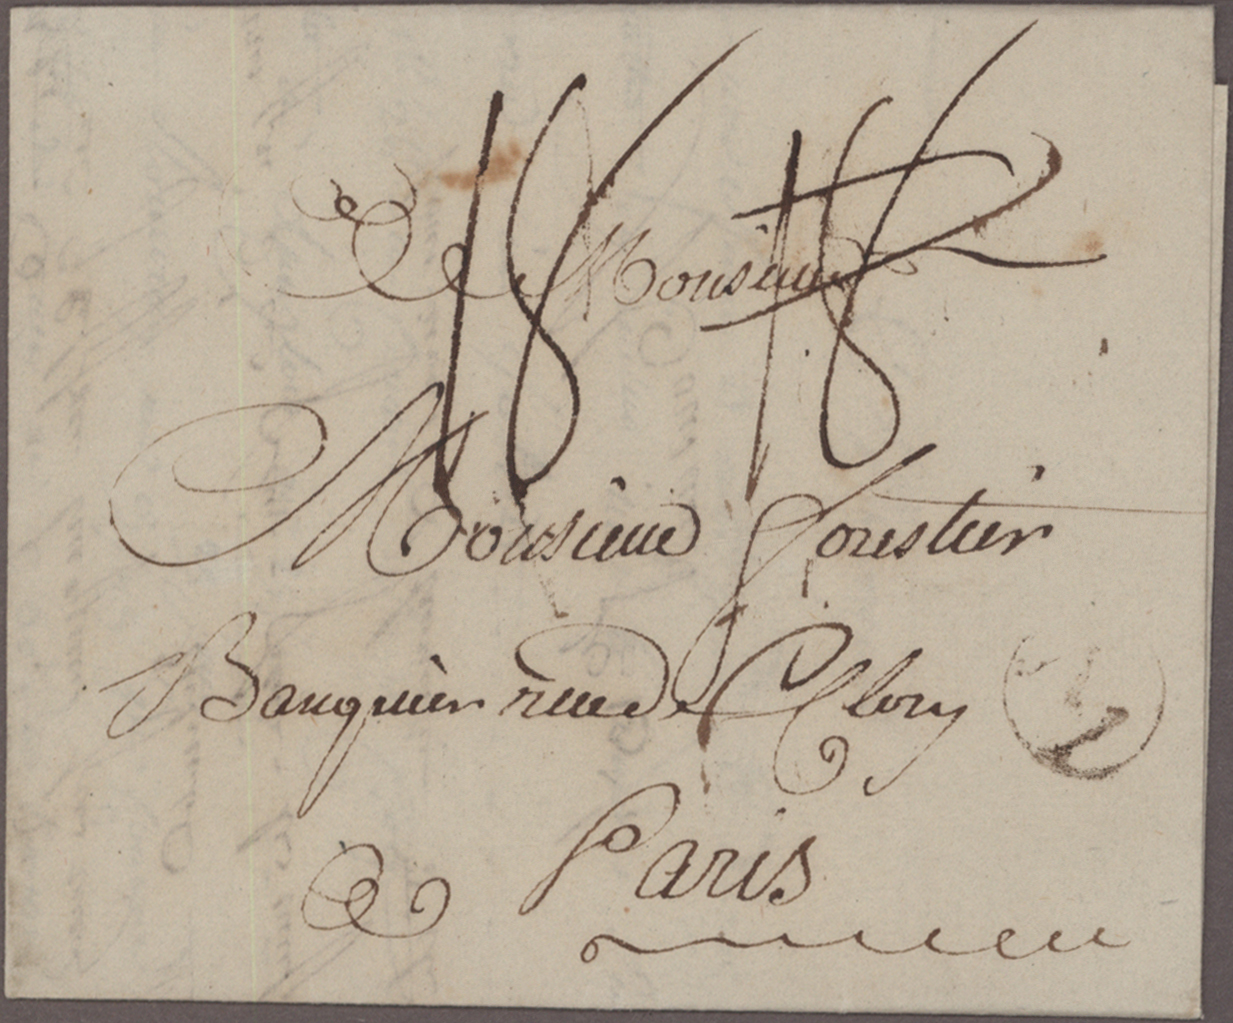 A Monsieur
18 18
Monsieur Forestier
Banquier rue de Clery
A Paris